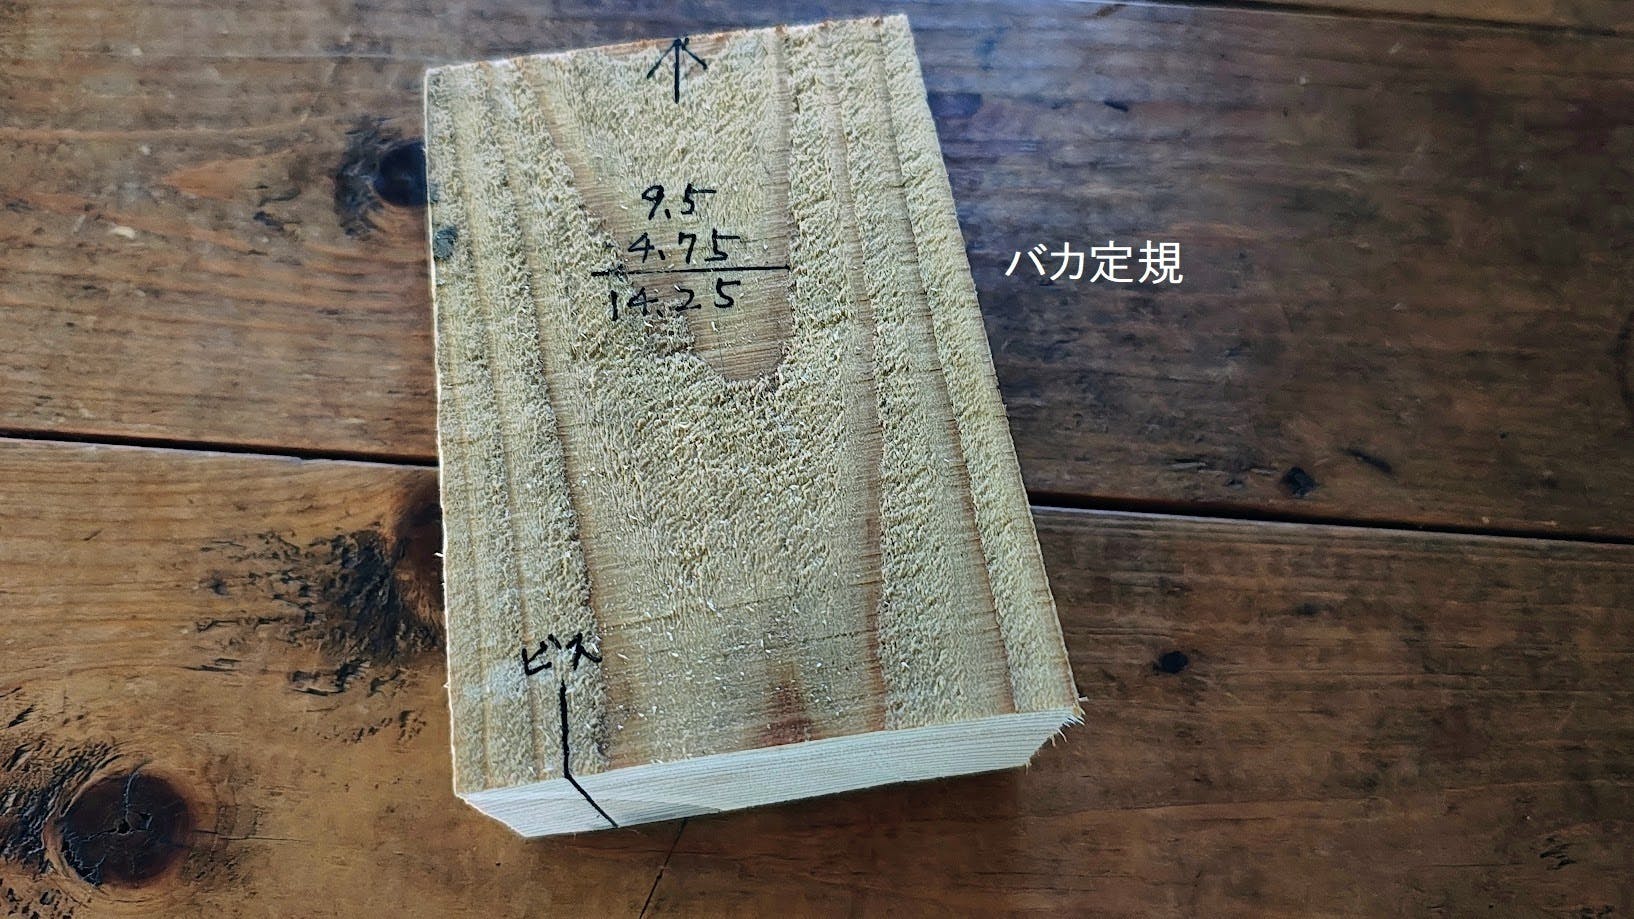 9.5
4.75
14.25
バカ定規
ビス